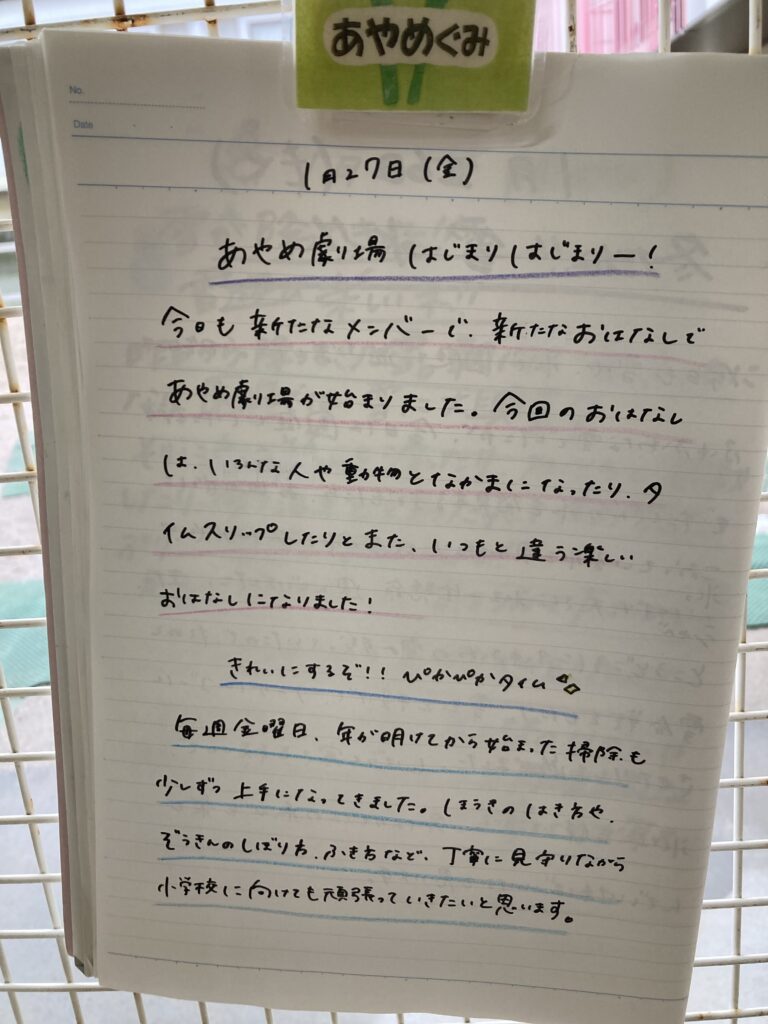 あやめぐみ
No.
Date
1月27日(金)
あやめ劇場 はじまりはじまりー!
今日も新たなメンバーで、新たなおはなしで
あやめ劇場が始まりました。今回のおはなし
は、いろんな人や動物となかまになったり、タ
イムスリップしたりとまた、いつもと違う楽しい
おはなしになりました!
きれいにするぞ!!ぴかぴかタイム
毎週金曜日、年が明けてから始まった掃除も
少しずつ上手になってきました。ほうきのはき方や、
ぞうきんのしぼり方、ふき方など、丁寧に見守りながら
小学校に向けても頑張っていきたいと思います。